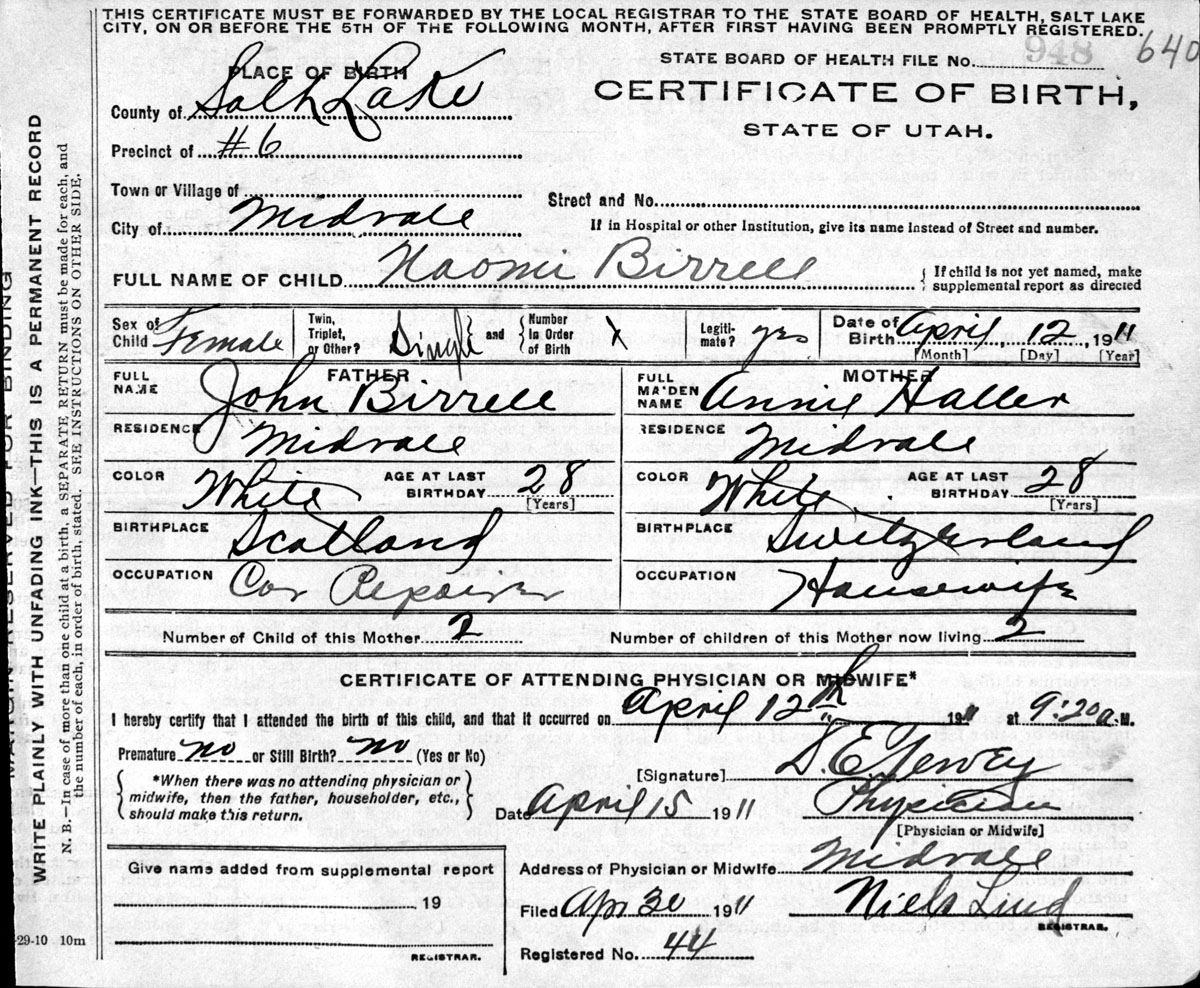 THIS CERTIFICATE MUST BE FORWARDED BY THE LOCAL REGISTRAR TO THE STATE BOARD OF HEALTH, SALT LAKE
CITY, ON OR BEFORE THE 5TH OF THE FOLLOWING MONTH, AFTER FIRST HAVING BEEN PROMPTLY REGISTERED.
STATE BOARD OF HEALTH FILE No. 948 640
PLACE OF BIRTH
CERTIFICATE OF BIRTH,
STATE OF UTAH.
County of Salt Lake
Precinct of #6
Town or Village of
Street and No.
City of Midvale
If in Hospital or other Institution, give its name instead of Street and number.
FULL NAME OF CHILD Naomi Birrell
If child is not yet named, make
supplemental report as directed
Sex of Child Female Twin, Triplet, or Other? Single and Number in Order of Birth Legiti-mate? yes Date of Birth April 12, 1911
[Month] [Day] [Year]
FATHER MOTHER
FULL NAME John Birrell FULL MAIDEN NAME Annie Haller
RESIDENCE Midvale RESIDENCE Midvale
COLOR White AGE AT LAST BIRTHDAY 28 [Years] COLOR White AGE AT LAST BIRTHDAY 28 [Years]
BIRTHPLACE Scotland BIRTHPLACE Switzerland
OCCUPATION Car Repairer OCCUPATION Housewife
Number of Child of this Mother 2 Number of children of this Mother now living 2
CERTIFICATE OF ATTENDING PHYSICIAN OR MIDWIFE*
I hereby certify that I attended the birth of this child, and that it occurred on April 12th 1911 at 9:20 a.M.
Premature no or Still Birth? no (Yes or No)
[Signature]
*When there was no attending physician or
midwife, then the father, householder, etc.,
should make this return.
Date April 15 1911 Physician
[Physician or Midwife]
Give name added from supplemental report
Address of Physician or Midwife Midvale
19
Filed Apr 30 1911 Niels Lind
REGISTRAR.
Registered No. 44
REGISTRAR.
-29-10 10m
MARGIN RESERVED FOR BINDING
WRITE PLAINLY WITH UNFADING INK—THIS IS A PERMANENT RECORD
N. B.—In case of more than one child at a birth, a SEPARATE RETURN must be made for each, and
the number of each, in order of birth, stated. SEE INSTRUCTIONS ON OTHER SIDE.